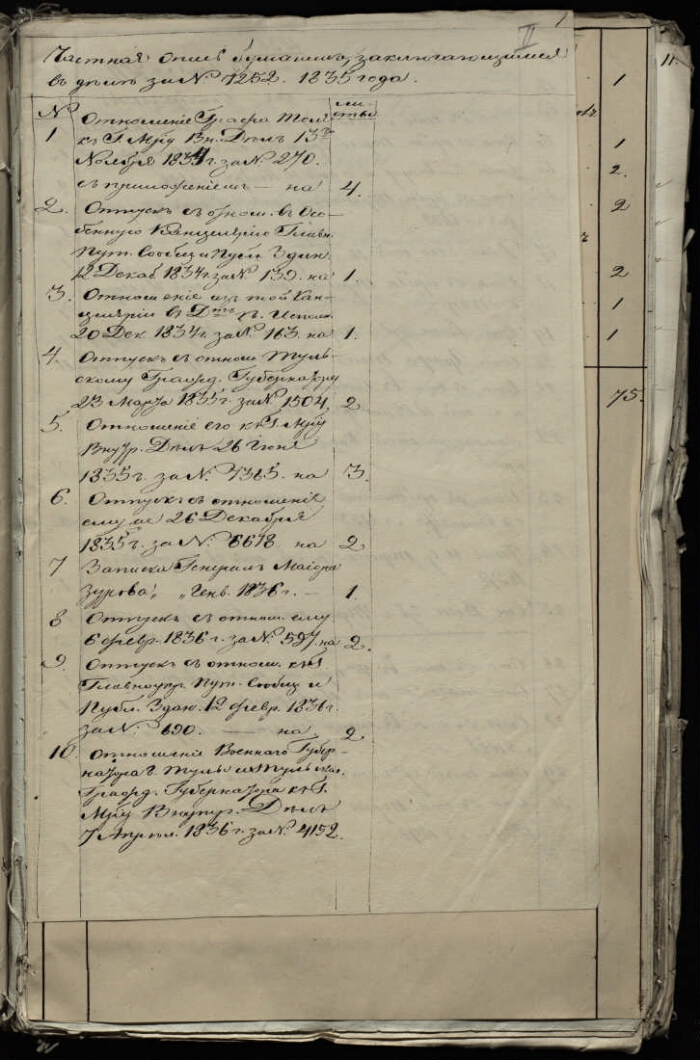 II 1
Частная опись бумагамъ, заключающимся
въ дѣлѣ за № 1252. 1835 года.
№ листы
1 Отношеніе Графа Толя
къ Г. Мру Вн. Дѣлъ 13го
Ноября 1834 г. за № 270.
съ приложеніемъ — на 4.
2. Отпускъ съ отнош. въ Осо-
бенную Канцелярію Главн.
Пут. Сообщ. и Публ. Здан.
12 Декаб. 1834 г. за № 139. на 1.
3. Отношеніе изъ той Кан-
целяріи въ Дтъ п. Испол.
20 Дек. 1834 г. за № 163. на 1.
4. Отпускъ съ отнош. Туль-
скому Гражд. Губернатору
23 Марта 1835 г. за № 1504. 2
5. Отношеніе его къ Г. Мру
Внутр. Дѣлъ 26 Іюня
1835 г. за №. 7385. на 3.
6. Отпускъ съ отношенія
ему же 26 Декабря
1835 г. за №: 6678 на 2
7 Записка Генералъ Маіора
Зурова, „ „ Генв. 1836 г. — 1.
8 Отпускъ съ отнош. ему
6 февр. 1836 г. за №. 597. на 2.
9. Отпускъ съ отнош. къ Г.
Главноупр. Пут. Сообщ. и
Публ. Здан. 12 февр. 1836 г.
за №: 690. — на 2
10. Отношенія Военнаго Губер-
натора г. Тулы и Тульскаг.
Гражд. Губернатора къ Г.
Мру Внутр. Дѣлъ
7 Апрѣл. 1836 г. за №. 4152.
11.
1
1
2.
2
2
1
1
75.